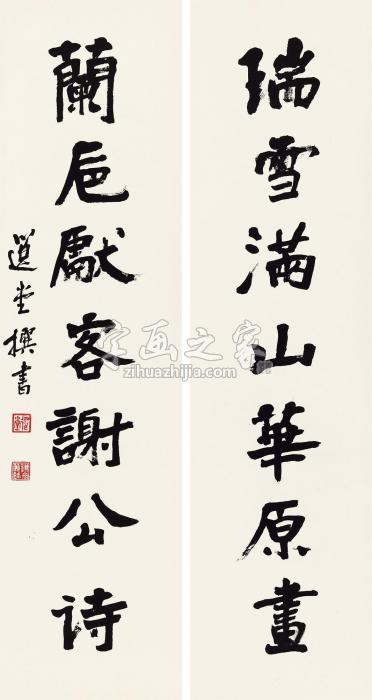 瑞雪滿山華原畫
蘭卮獻客謝公詩
選堂撰書
字画之家
zihuazhijia.com